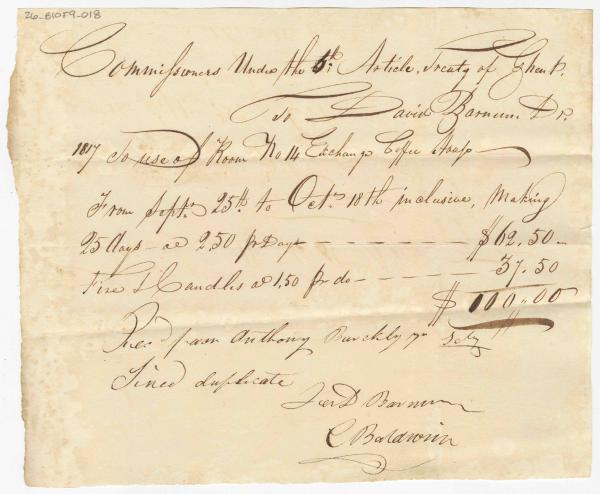 26-B10F9-018
Commissioners Under the 5th. Article, Treaty of Ghent.
To David Barnum Dr.
1817 To use of Room No 14 Exchange Coffee House
From Septr. 25th to Octr. 18th inclusive, Making
25 days - at 2.50 pr Day - $62.50
Fire & Candles at 1.50 pr do - 37.50
$100.00
Recd from Anthony Barclay Secy
Sined duplicate
for D Barnum
C Baldwin